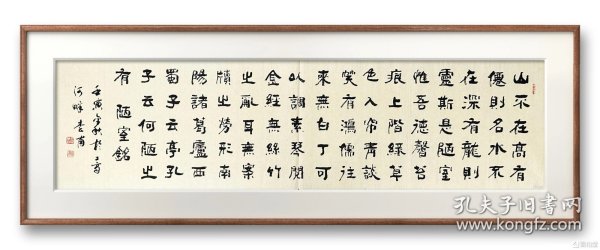 山不在高有
僊則名水不
在深有龍則
靈斯是陋室
惟吾德馨苔
痕上階綠草
色入帘青談
笑有鴻儒往
來無白丁可
以調素琴閱
金經無絲竹
之亂耳無案
牘之勞形南
陽諸葛廬西
蜀子云亭孔
子云何陋之
有 陋室銘
壬寅年秋於
孔夫子旧书网
www.kongfz.com